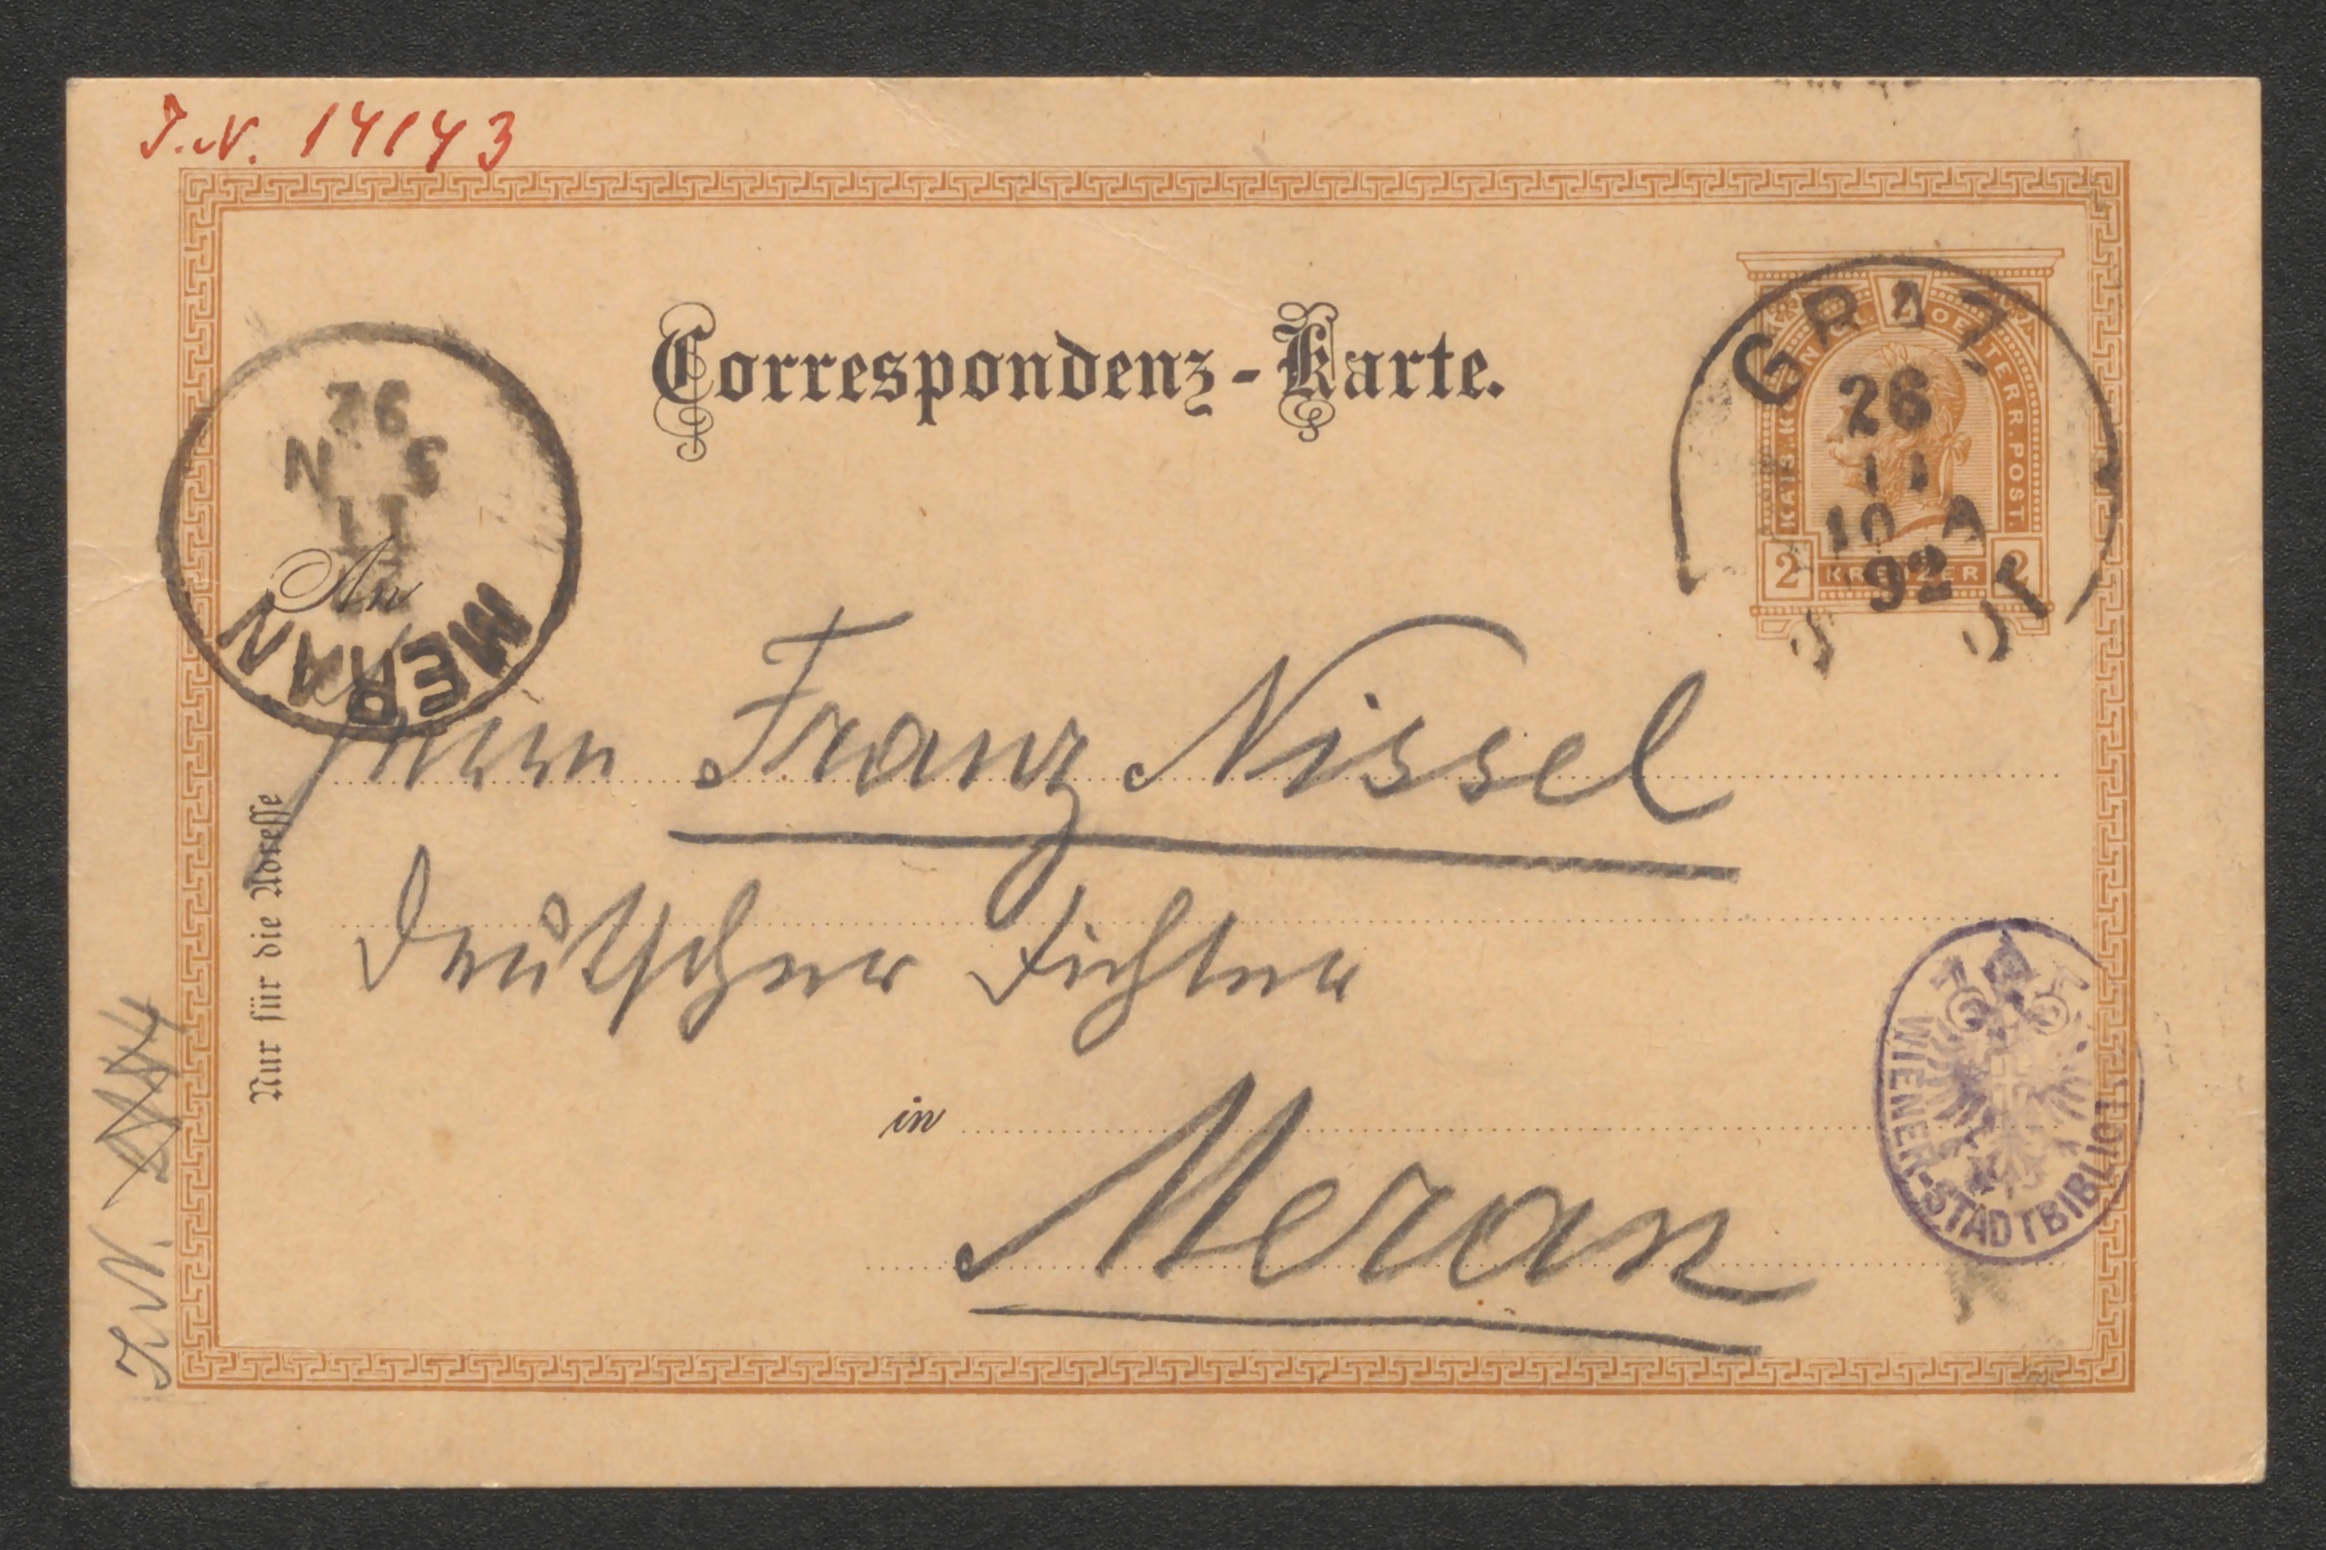 J.N. 14143
Correspondenz-Karte.
GRAZ
26
11
10 A
92
KAIS. KÖNIGL. OESTERR. POST.
2
2 KREUZER 2
An
MERAN
26
11
92
Herrn Franz Nissel
Deutscher Dichter
in
Meran
Nur für die Adresse
J.N.
WIENER-STADTBIBLIOT